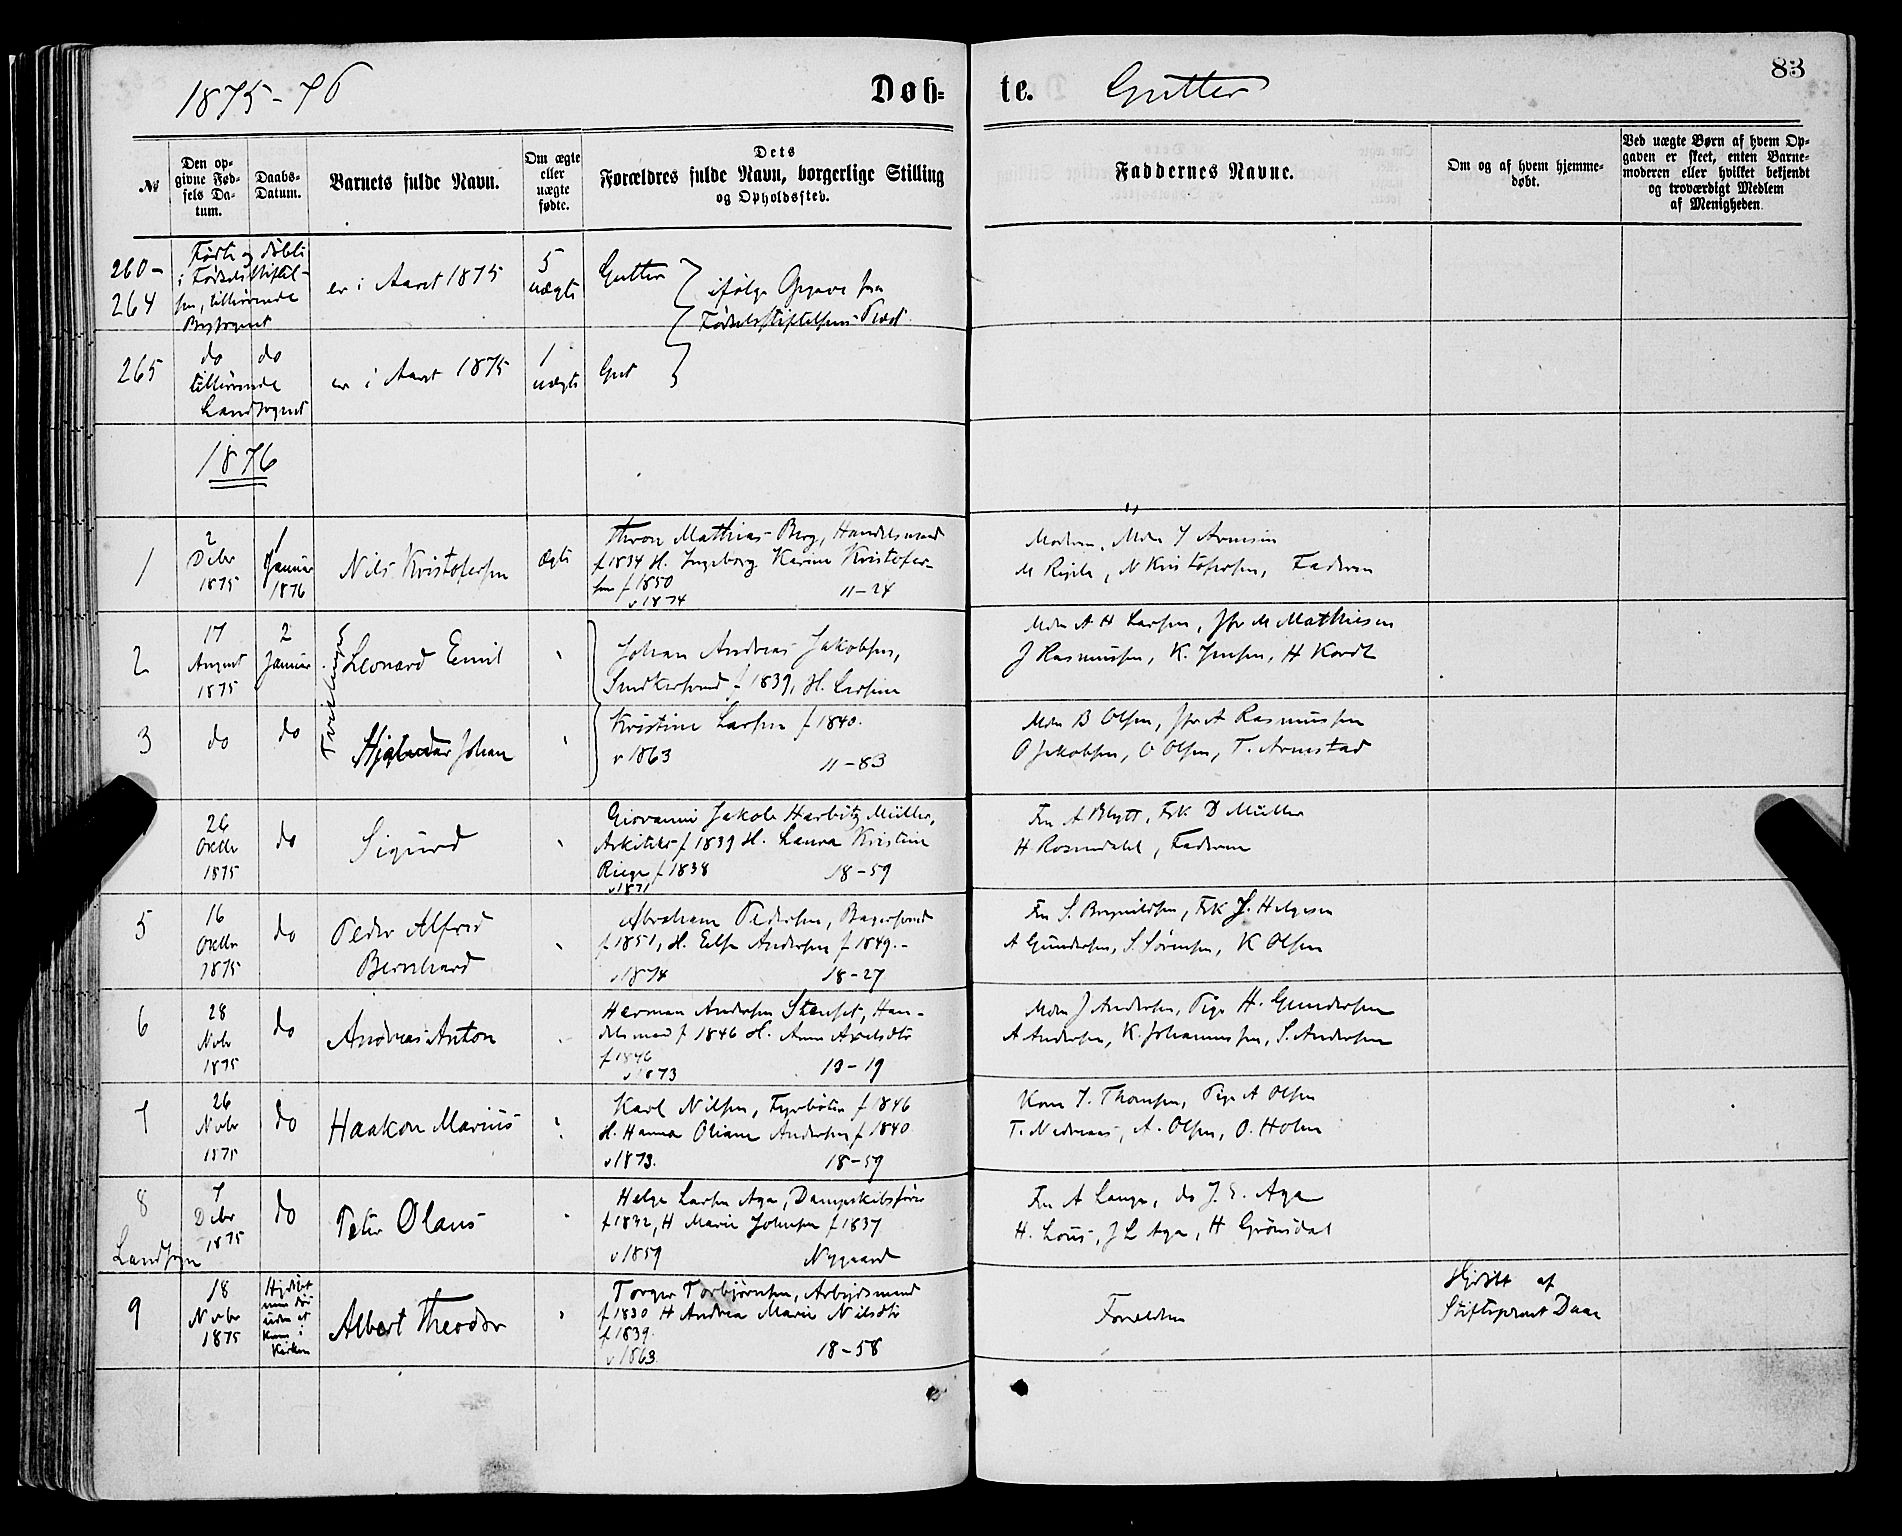 1875-76
Døb-
te.
Gutter
83
№
Den op-
givne Fød-
sels Da-
tum.
Daabs-
Datum.
Barnets fulde Navn.
Om ægte
eller
uægte
fødte.
Dets
Forældres fulde Navn, borgerlige Stilling
og Opholdssted.
Faddernes Navne.
Om og af hvem hjemme-
døbt.
Ved uægte Børn af hvem Op-
gaven er skeet, enten Barne-
moderen eller hvilket bekjendt
og troværdigt Medlem
af Menigheden.
260-
264
Født og døbte
i Fødselsstiftel-
sen, tilhørende
Bysognet
er i Aaret 1875
5
uægte
Gutter
ifølge Opgave fra
Fødselsstiftelsens Præst
265
do do
tilhørende
Landsognet
er i Aaret 1875
1
uægte
Gut
1876
1
2
Decbr
1875
1
Januar
1876
Nils Kristofersen
Ægte
Thron Mathias Berg, Handelsmand
f 1834 H. Ingeborg Karine Kristofer-
sen f 1850
v 1874 11-24
Moderen, Mdm J Arnesen
M N Kristofersen, Faderen
2
17
August
1875
2
Januar
Tvillinger
Leonard Emil
Johan Andreas Jakobsen,
f 1839, H.
Mdm A H Larsen, Jfr M Mathiesen
J Rasmussen, K. Jensen, H Kordt
3
do
do
Hjalmar Johan
Kristine Larsen f 1840.
v 1863 11-83
Mdm B Olsen, Jfr A Rasmussen
O Jakobsen, O Olsen, T. Arnestad
26
Octbr
1875
do
Sigurd
Giovanni Jakob Harbitz Müller,
Arkitekt f 1839 H. Laura Kristine
f 1838 18-59
v 1871
Fru A Blytt, Frk D Müller
H Rosendahl, Faderen
5
16
Octbr
1875
do
Peder Alfred
Bernhard
Abraham Pedersen, Bagersvend
f 1851, H. Andersen f 1849.-
v 1874 18-27
Fru S. Frk J. Helgesen
A Gundersen, S Sørensen, K Olsen
6
28
Nvbr
1875
do
Andreas Anton
Herman Andersen Stenset, Han-
delsmand f 1846 H. Anne Axelsdtr
f 1846
v 1873 13-19
Mdm J Andersen, Pige H. Gundersen
A Andersen, K. Johannessen, S. Andersen
7
26
Nvbr
1875
do
Haakon Marius
Karl Nilsen, Fyrbøter f 1846
H. Hanna Oliane Andersen f 1840
v 1873. 18-59
Kone J. Thomsen, Pige A Olsen
T. A. Olsen, O. Holm
8
Landsogn
7
Decbr
1875
do
Peter Olaus
Helge Larsen Aga, Dampskibsfører
f 1832, H Marie Johnsen f 1837
v 1859 Nygaard
Fru A Lange, do J. E. Aga
H. Lous, J L Aga, H Grønsdal
9
18
Nvbr
1875
Hjdøbt
men død
uden at
kom i
Kirken
Albert Theodor
Torger Torbjørnsen, Arbejdsmand
f 1830 H Andrea Marie Nilsdtr
f 1839.
v 1863. 18-58
Forældrene
Hjdøbt af
Stiftsprovst Daae